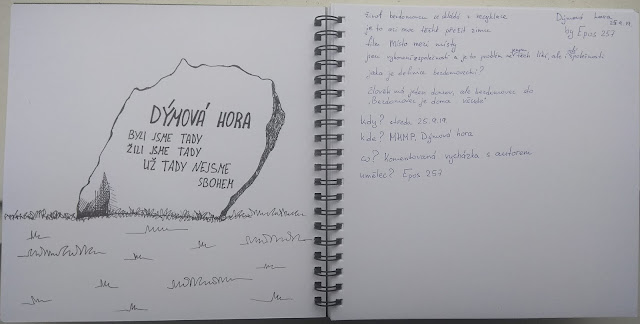 DÝMOVÁ HORA
BYLI JSME TADY
ŽILI JSME TADY
UŽ TADY NEJSME
SBOHEM
Dýmová hora
25.9.19
by Epos 257
život bezdomovce a dítěte z recyklace
je to
místo mezi
jsou a je to problém ne těch lidí, ale společnosti
jaká je definice bezdomovectví?
člověk má jeden domov, ale bezdomovec do
"Bezdomovec je doma všude"
kdy? středa 25.9.19
kde? MHMP, Dýmová hora
co? Komentovaná vycházka s autorem
umělec? Epos 257